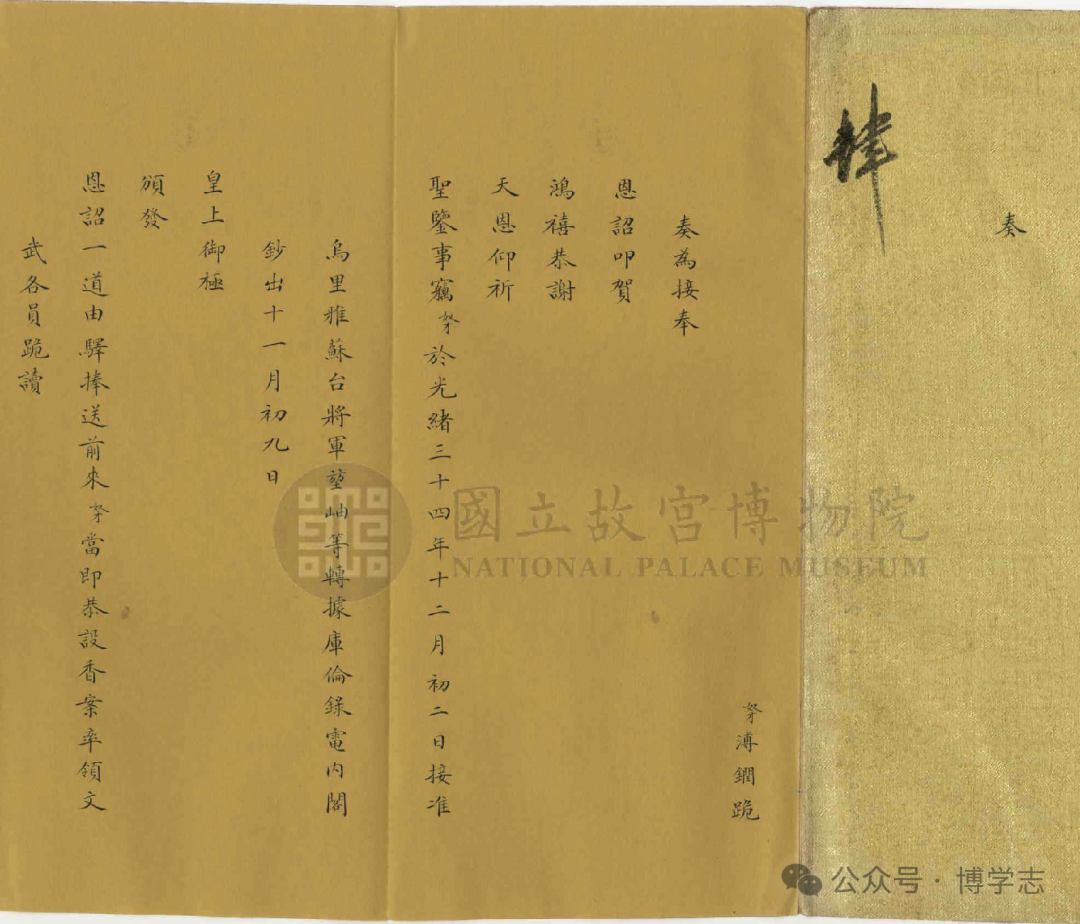 奏
奴才溥鐗跪
奏為接奉
恩詔叩賀
鴻禧恭謝
天恩仰祈
聖鑒事竊奴才於光緒三十四年十二月初二日接准
烏里雅蘇台將軍堃岫等轉據庫倫錄電內閣
鈔出十一月初九日
皇上御極
頒發
恩詔一道由驛捧送前來奴才當即恭設香案率領文
武各員跪讀
國立故宮博物院
NATIONAL PALACE MUSEUM
公众号·博学志